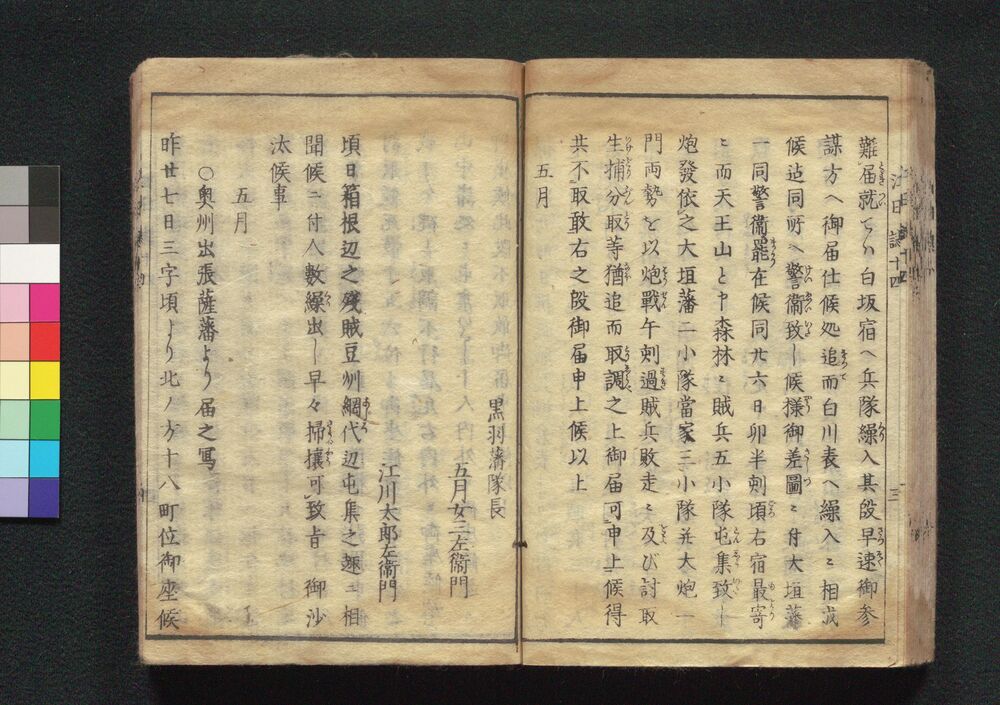 難届就てハ白坂宿へ兵隊繰入其段早速御参
謀方へ御届仕候処追而白川表へ繰入ニ相成
候迠同所へ警衞致し候様御差圖ニ付大垣藩
一同警衞罷在候同廿六日卯半刻頃右宿最寄
ニ而天王山と申森林ニ賊兵五小隊屯集致し
炮發依之大垣藩二小隊當家三小隊并大炮一
門両勢を以炮戰午刻過賊兵敗走ニ及び討取
生捕分取等猶追而取調之上御届可申上候得
共不取敢右之段御届申上候以上
五月
黒羽藩隊長
五月女三左衞門
江川太郎左衞門
頃日箱根辺之殘賊豆州網代辺屯集之趣ニ相
聞候ニ付人數繰出し早々掃攘可致旨 御沙
汰候事
五月
○奥州出張薩藩より届之寫
昨廿七日三字頃より北ノ方十八町位御座候